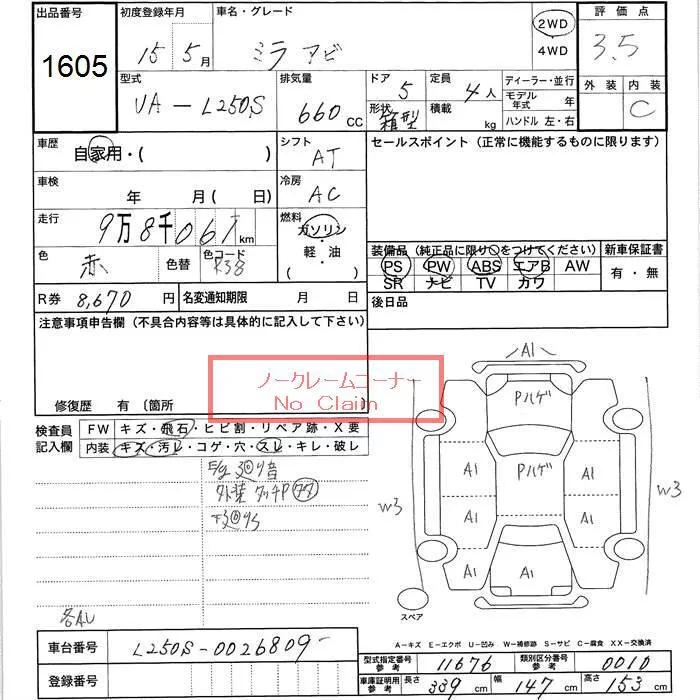 出品番号 初度登録年月 車名・グレード 評価点
1605 15年 5月 ミラ アビ 2WD 4WD 3.5
外装 内装
C
型式 排気量 ドア 定員 ディーラー・並行
UA-L250S 660CC 5 4人 モデル年式 年
形状 箱型 積載 kg ハンドル 左・右
車歴 自家用・( ) シフト AT セールスポイント(正常に機能するものに限ります)
車検 年 月( 日) 冷房 AC
走行 9万8千061km 燃料 ガソリン・軽・油( )
色 赤 色替 色コード R38
装備品(純正品に限り〇をつけてください) 新車保証書
PS PW ABS エアB AW 有・無
SR ナビ TV カワ
R券 8,670円 名変通知期限 月 日 後日品
注意事項申告欄(不具合内容等は具体的に記入して下さい)
ノークレームコーナー
No Claim
修復歴 有(箇所 )
検査員記入欄 FW キズ・飛石・ヒビ割・リペア跡・X要
内装 キズ・汚レ・コゲ・穴・スレ・キレ・破レ
外装 タッチP
A1
Pハゲ
A1 Pハゲ A1
W3 W3
A1 A1
A1 A1 A1
スペア
A-キズ E-エクボ U-凹み W-補修跡 S-サビ C-腐食 XX-交換済
車台番号 L250S-0026809-
登録番号
型式指定番号 参考 11676 類別区分番号 参考 0010
車庫証明用 参考 長さ 339cm 幅 147cm 高さ 153cm